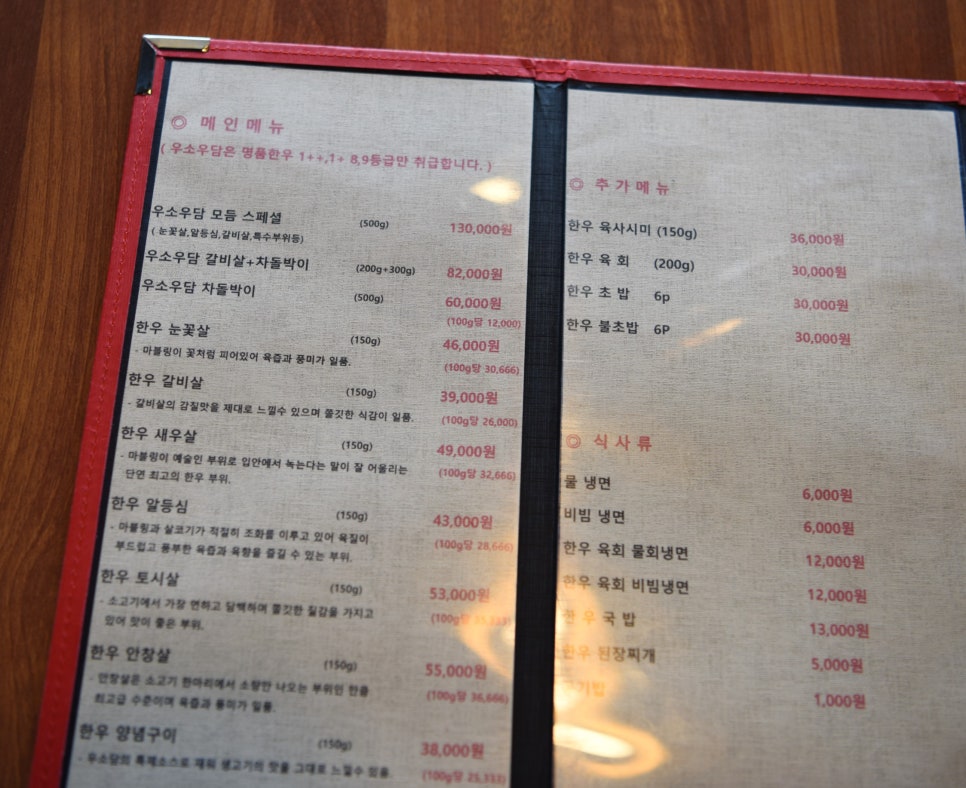 메인메뉴
( 우소우담은 명품한우 1++,1+ 8,9등급만 취급합니다. )
우소우담 모듬 스페셜 (500g) 130,000원
( 눈꽃살,알등심,갈비살,특수부위등)
우소우담 갈비살+차돌박이 (200g+300g) 82,000원
우소우담 차돌박이 (500g) 60,000원
(100g당 12,000)
한우 눈꽃살 (150g) 46,000원
- 마블링이 꽃처럼 피어있어 육즙과 풍미가 일품. (100g당 30,666)
한우 갈비살 (150g) 39,000원
- 갈비살의 감칠맛을 제대로 느낄수 있으며 쫄깃한 식감이 일품. (100g당 26,000)
한우 새우살 (150g) 49,000원
- 마블링이 예술인 부위로 입안에서 녹는다는 말이 잘 어울리는 (100g당 32,666)
단연 최고의 한우 부위.
한우 알등심 (150g) 43,000원
- 마블링과 살코기가 적절히 조화를 이루고 있어 육질이 (100g당 28,666)
부드럽고 풍부한 육즙과 육향을 즐길 수 있는 부위.
한우 토시살 (150g) 53,000원
- 소고기에서 가장 연하고 담백하며 쫄깃한 질감을 가지고 (100g당
있어 맛이 좋은 부위.
한우 안창살 (150g) 55,000원
- 안창살은 소고기 한마리에서 소량만 나오는 부위인 만큼 (100g당 36,666)
최고급 수준이며 육즙과 풍미가 일품.
한우 양념구이 (150g) 38,000원
- 우소담의 특제소스로 재워 생고기의 맛을 그대로 느낄수 있음. (100g당 25,333)
추가메뉴
한우 육사시미 (150g) 36,000원
한우 육 회 (200g) 30,000원
한우 초 밥 6p 30,000원
한우 불초밥 6P 30,000원
식사류
물 냉면 6,000원
비빔 냉면 6,000원
한우 육회 물회냉면 12,000원
한우 육회 비빔냉면 12,000원
한우국밥 13,000원
한우 된장찌개 5,000원
공기밥 1,000원